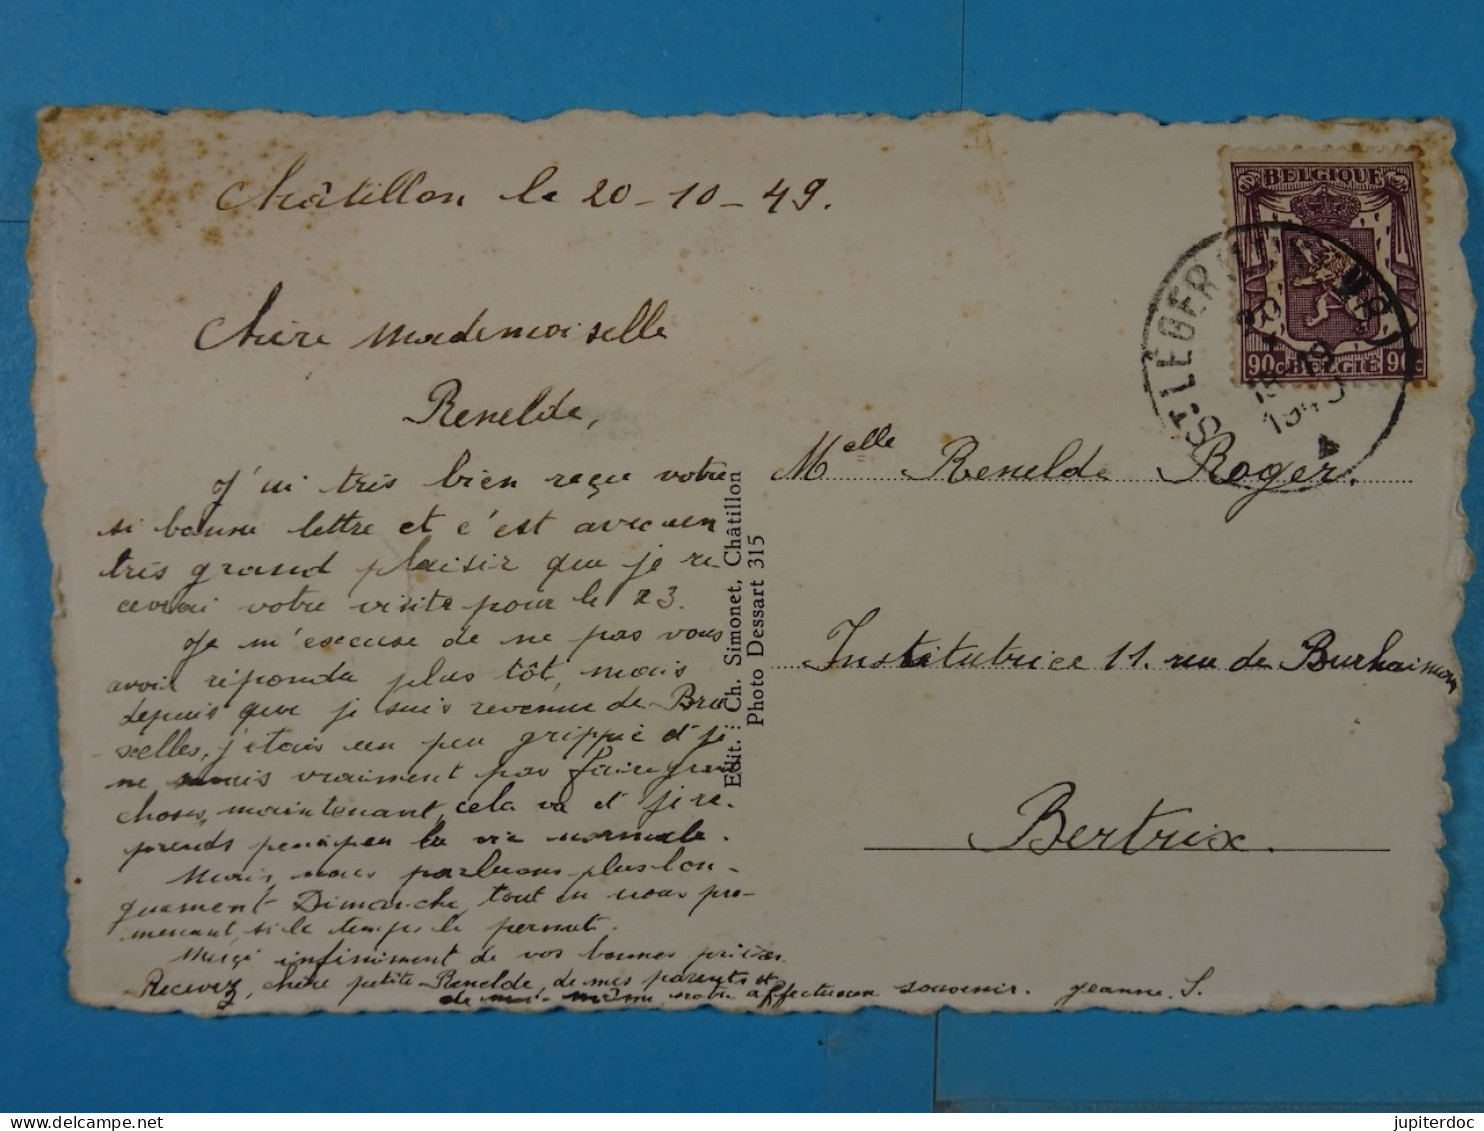 Châtillon le 20-10-49.
Chère Mademoiselle
Renelde,
J'ai très bien reçu votre
si bonne lettre et c'est avec un
très grand plaisir que je re
cevrai votre visite pour le 23.
Je m'excuse de ne pas vous
avoir répondu plus tôt, mais
depuis que je suis revenue de Bru
xelles, j'étais un peu grippée et je
ne vraiment pas faire
choses, maintenant, cela va et je re-
prends peu à peu la vie normale.
Mais nous parlerons plus lon-
guement Dimanche, tout en nous pro-
menant, si le temps le permet.
Merçi infiniment de vos bonnes prières.
Recevez, chère petite Renelde, de mes parents et
de moi-même notre affectueux souvenir. Jeanne. S.
Edit. : Ch. Simonet, Châtillon
Photo Dessart 315
BELGIQUE
90c BELGIË 90c
ST-LÉGER
20
1949
Melle Renelde Roger.
Institutrice 11. rue de Burhaimon
Bertrix.
jupiterdoc